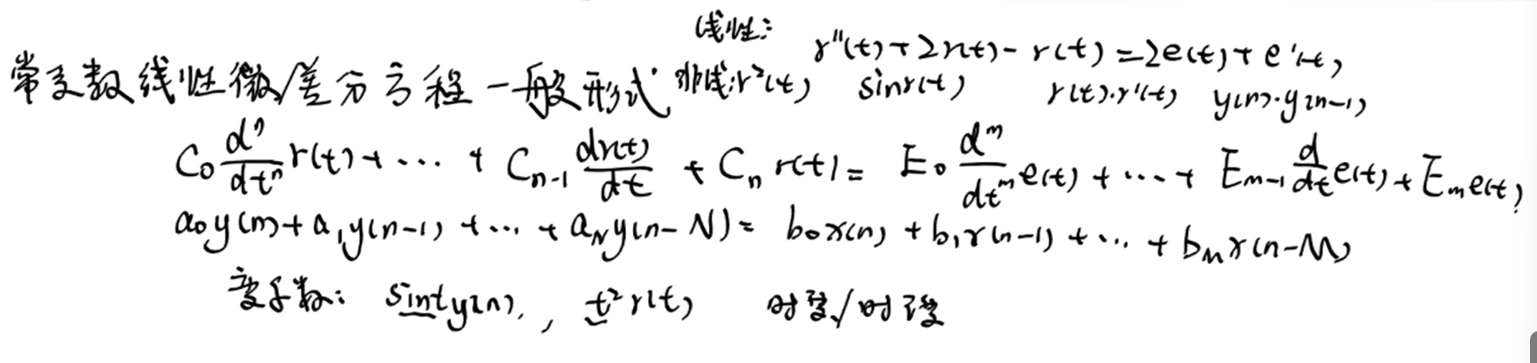 线性: r''(t)+2r(t)-r(t)=2e(t)+e'(t)
常系数线性微/差分方程一般形式 非线:r²(t) sinr(t) r(t)·r'(t) y(n)·y(n-1)
C₀ dⁿ/dtⁿ r(t)+···+ Cₙ₋₁ dr(t)/dt + Cₙ r(t)= E₀ dᵐ/dtᵐ e(t)+···+ Eₘ₋₁ d/dt e(t)+Eₘe(t)
a₀y(n)+a₁y(n-1)+···+a_N y(n-N)= b₀x(n)+b₁x(n-1)+···+b_M x(n-M)
变系数: sint y(n), t²r(t) 时变/时